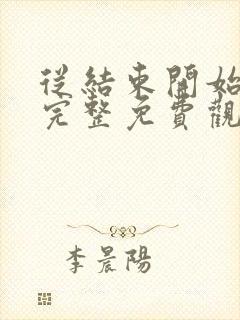 從結束開始
完整免費觀
李晨陽